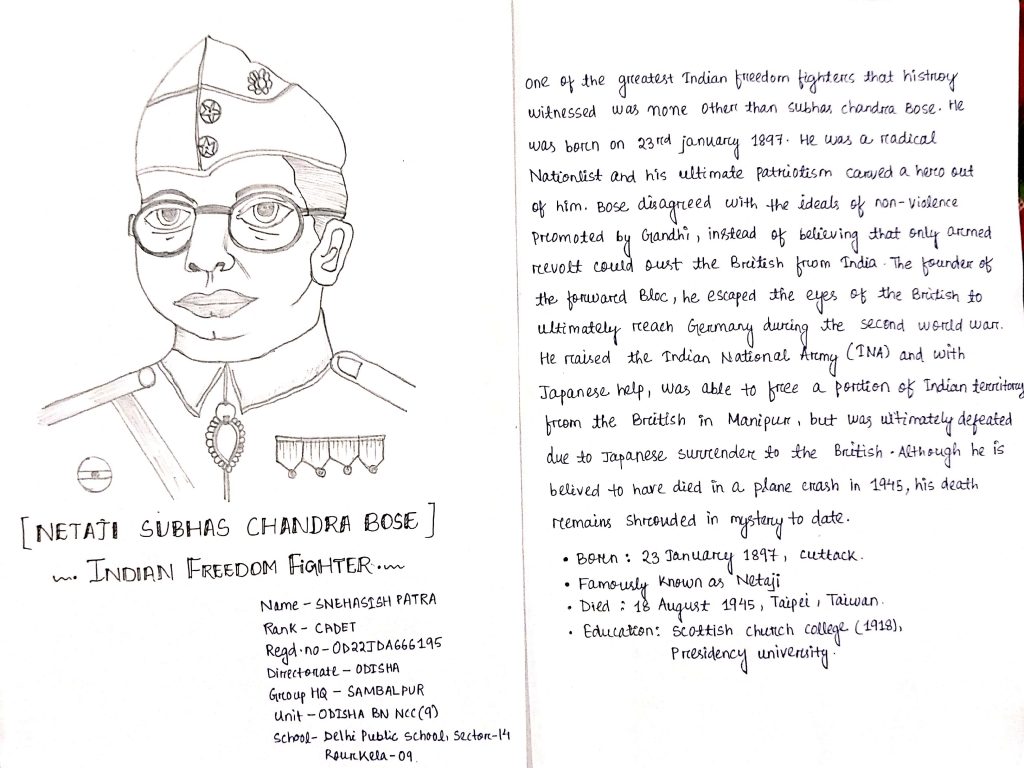 [NETAJI SUBHAS CHANDRA BOSE]
INDIAN FREEDOM FIGHTER.
Name - SNEHASISH PATRA
Rank - CADET
Regd.no - OD22JDA666195
Directorate - ODISHA
Group HQ - SAMBALPUR
Unit - ODISHA BN NCC(9)
School - Delhi Public School, Sector-14
Rourkela-09.
One of the greatest Indian freedom fighters that histroy
witnessed was none other than subhas chandra Bose. He
was born on 23rd january 1897. He was a radical
Nationlist and his ultimate patriotism carved a hero out
of him. Bose disagreed with the ideals of non-violence
promoted by Gandhi, instead of believing that only armed
revolt could oust the British from India. The founder of
the forward Bloc, he escaped the eyes of the British to
ultimately reach Germany during the second world war.
He raised the Indian National Army (INA) and with
Japanese help, was able to free a portion of Indian territory
from the British in Manipur, but was ultimately defeated
due to Japanese surrender to the British. Although he is
belived to have died in a plane crash in 1945, his death
remains shrouded in mystery to date.
• Born : 23 January 1897, cuttack.
• Famously known as Netaji
• Died : 18 August 1945, Taipei, Taiwan.
• Education: scottish church college (1918),
Presidency university.